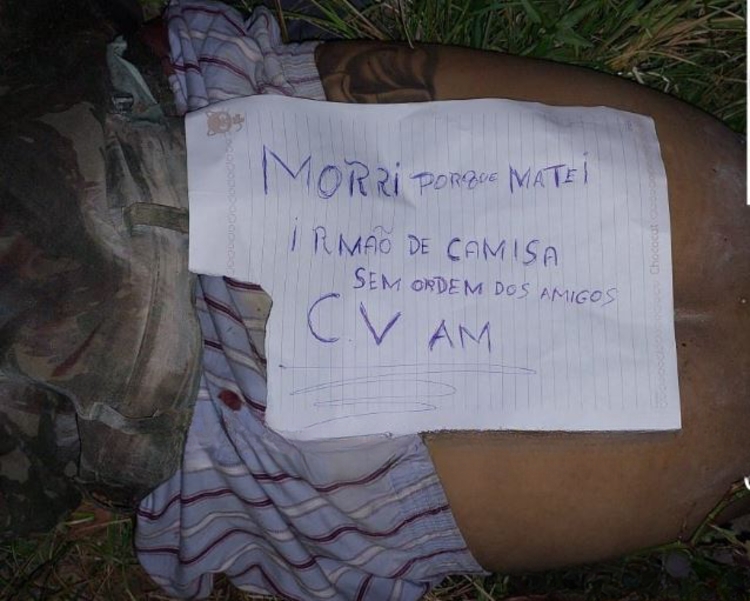 MORRI PORQUE MATEI
IRMÃO DE CAMISA
SEM ORDEM DOS AMIGOS
C.V AM
Chococat